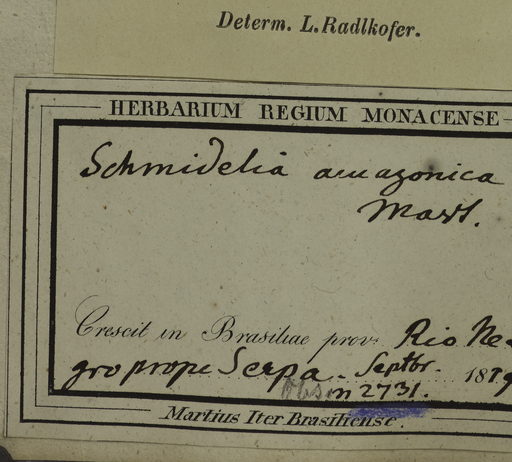 Determ. L. Radlkofer.
HERBARIUM REGIUM MONACENSE
Schmidelia amazonica
Mart.
Crescit in Brasiliae prov. Rio Ne-
gro prope Serpa. Septbr. 1819
Obs. n 2731.
Martius Iter Brasiliense.